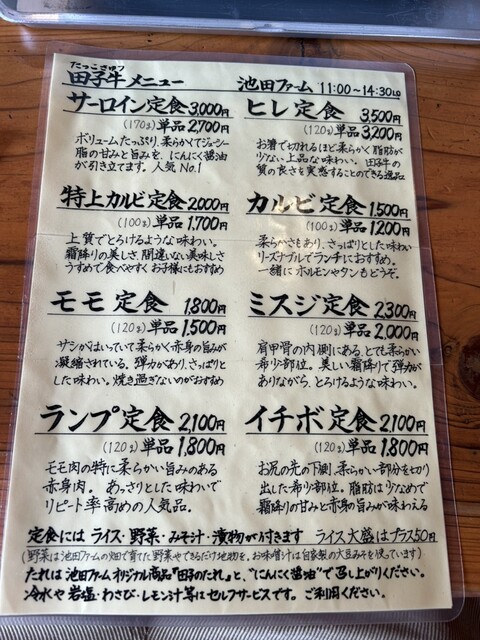 たっこぎゅう
田子牛メニュー 池田ファーム 11:00~14:30LO
サーロイン定食 3,000円
(170g)単品 2,700円
ボリュームたっぷり、柔らかくてジューシー
脂の甘みと旨みを、にんにく醤油
が引き立てます。人気No.1
ヒレ定食 3,500円
(120g)単品 3,200円
お箸で切れるほど柔らかく脂肪が
少ない、上品な味わい。田子牛の
質の良さを実感することのできる逸品
特上カルビ定食 2,000円
(100g)単品 1,700円
上質でとろけるような味わい。
霜降りの美しさ、間違いない美味しさ
うすめで食べやすくお子様にもおすすめ
カルビ定食 1,500円
(100g)単品 1,200円
柔らかさもあり、さっぱりとした味わい
リーズナブルでランチにおすすめ。
一緒にホルモンやタンもどうぞ。
モモ定食 1,800円
(120g)単品 1,500円
サシがはいっていて柔らかく赤身の旨みが
凝縮されている。弾力があり、さっぱりと
した味わい。焼き過ぎないのがおすすめ
ミスジ定食 2,300円
(120g)単品 2,000円
肩甲骨の内側にある、とても柔らかい
希少部位。美しい霜降りで弾力が
ありながら、とろけるような味わい。
ランプ定食 2,100円
(120g)単品 1,800円
モモ肉の特に柔らかい旨みのある
赤身肉。あっさりとした味わいで
リピート率高めの人気品。
イチボ定食 2,100円
(120g)単品 1,800円
お尻の先の下側、柔らかい部分を切り
出した希少部位。脂肪は少なめで
霜降りの甘みと赤身の旨みが味わえる
定食にはライス・野菜・みそ汁・漬物が付きます ライス大盛はプラス50円
(野菜は池田ファームの畑で育てた野菜やできるだけ地物を、お味噌汁は自家製の大豆みそを使っています)
たれは池田ファームオリジナル商品"田子のたれ"と、"にんにく醤油"で召し上がりください。
冷水や岩塩・わさび・レモン汁等はセルフサービスです。ご利用ください。